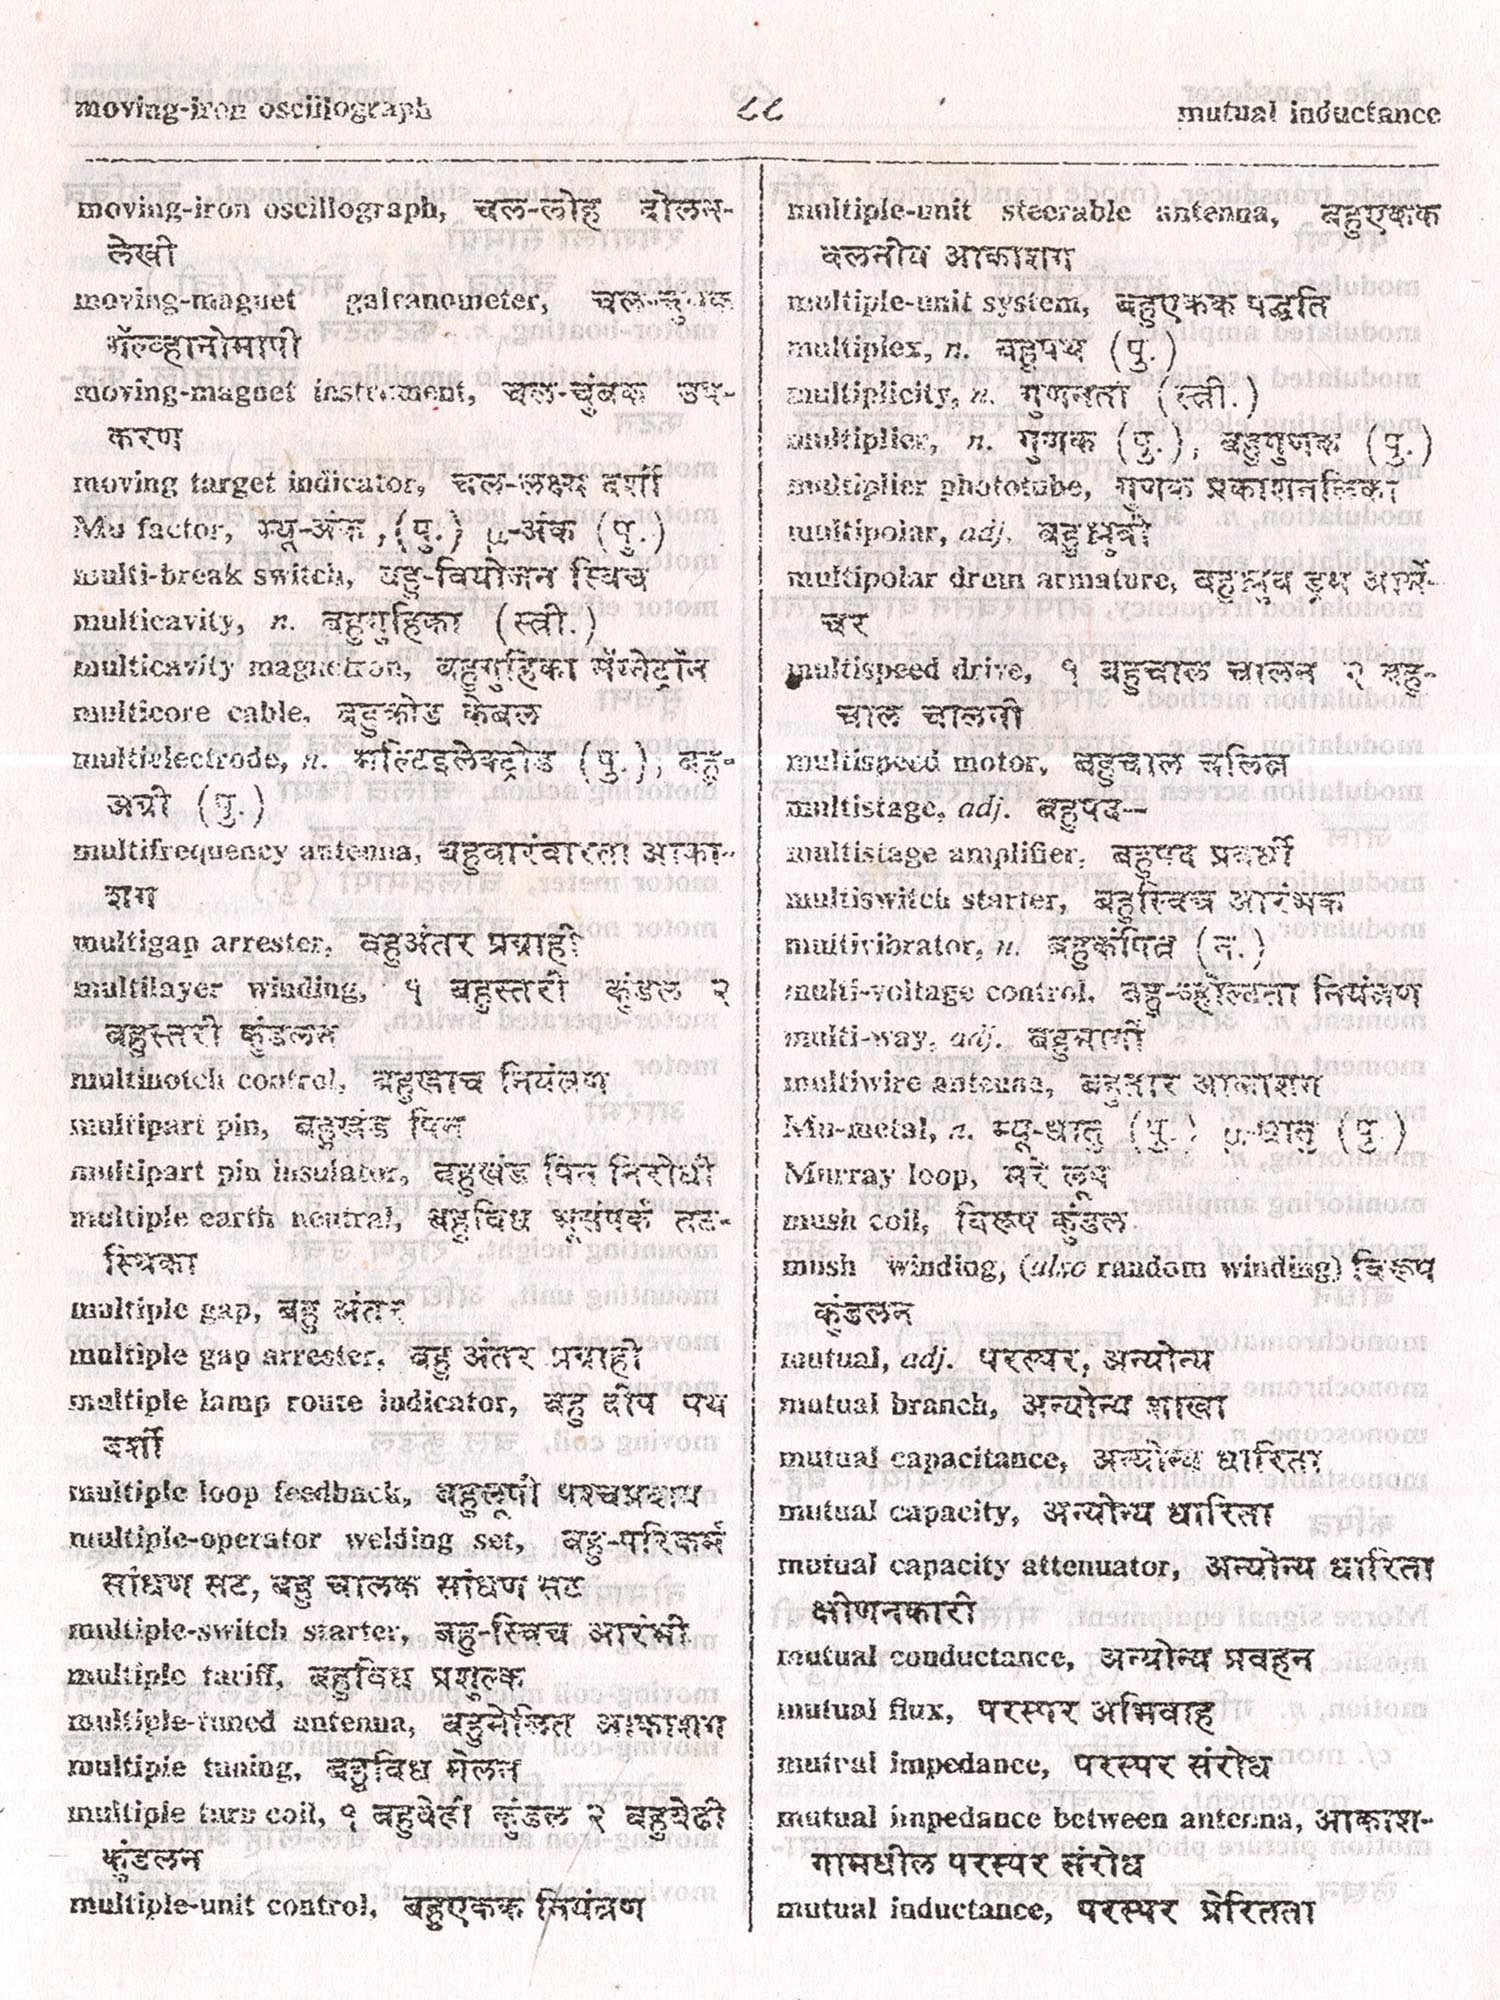 moving-iron oscillograph
८८
mutual inductance
moving-iron oscillograph, चल-लोह दोलन-
लेखी
moving-magnet galvanometer, चल-चुंबक
गॅल्व्हानोमापी
moving-magnet instrument, चल-चुंबक उप-
करण
moving target indicator, चल-लक्ष्य दर्शी
Mu factor, म्यू-अंक ,(पु.) μ-अंक (पु.)
multi-break switch, बहु-वियोजन स्विच
multicavity, n. बहुगुहिका (स्त्री.)
multicavity magnetron, बहुगुहिका मॅग्नेट्रॉन
multicore cable, बहुक्रोड केबल
multielectrode, n. मल्टिइलेक्ट्रोड (पु.), बहु-
अग्री (पु.)
multifrequency antenna, बहुवारंवारता आका-
शग
multigap arrester, बहुअंतर प्रग्राही
multilayer winding, १ बहुस्तरी कुंडल २
बहुस्तरी कुंडलन
multinotch control, बहुखाच नियंत्रण
multipart pin, बहुखंड पिन
multipart pin insulator, बहुखंड पिन निरोधी
multiple earth neutral, बहुविध भूसंपर्क तट-
स्थिका
multiple gap, बहु अंतर
multiple gap arrester, बहु अंतर प्रग्राही
multiple lamp route indicator, बहु दीप पथ
दर्शी
multiple loop feedback, बहुलूपी पश्चप्रदाय
multiple-operator welding set, बहु-परिकर्म
सांधण सट, बहु चालक सांधण सट
multiple-switch starter, बहु-स्विच आरंभी
multiple tariff, बहुविध प्रशुल्क
multiple-tuned antenna, बहुमेलित आकाशग
multiple tuning, बहुविध मेलन
multiple turn coil, १ बहुवेढी कुंडल २ बहुवेढी
कुंडलन
multiple-unit control, बहुएकक नियंत्रण
multiple-unit steerable antenna, बहुएकक
वलनीय आकाशग
multiple-unit system, बहुएकक पद्धति
multiplex, n. बहुपथ (पु.)
multiplicity, n. गुणनता (स्त्री.)
multiplier, n. गुणक (पु.), बहुगुणक (पु.)
multiplier phototube, गुणक प्रकाशनलिका
multipolar, adj. बहुध्रुवी
multipolar drum armature, बहुध्रुव ड्रम आर्मे-
चर
multispeed drive, १ बहुचाल चालन २ बहु-
चाल चालनी
multispeed motor, बहुचाल चलित्र
multistage, adj. बहुपद—
multistage amplifier, बहुपद प्रवर्धी
multiswitch starter, बहुस्विच आरंभक
multivibrator, n. बहुकंपित्र (न.)
multi-voltage control, बहु-व्होल्टता नियंत्रण
multi-way, adj. बहुमार्गी
multiwire antenna, बहुतार आकाशग
Mu-metal, n. म्यू-धातु (पु.) μ-धातु (पु.)
Murray loop, मरे लूप
mush coil, विरूप कुंडल
mush winding, (also random winding) विरूप
कुंडलन
mutual, adj. परस्पर, अन्योन्य
mutual branch, अन्योन्य शाखा
mutual capacitance, अन्योन्य धारिता
mutual capacity, अन्योन्य धारिता
mutual capacity attenuator, अन्योन्य धारिता
क्षीणनकारी
mutual conductance, अन्योन्य प्रवहन
mutual flux, परस्पर अभिवाह
mutual impedance, परस्पर संरोध
mutual impedance between antenna, आकाश-
गामधील परस्पर संरोध
mutual inductance, परस्पर प्रेरितता